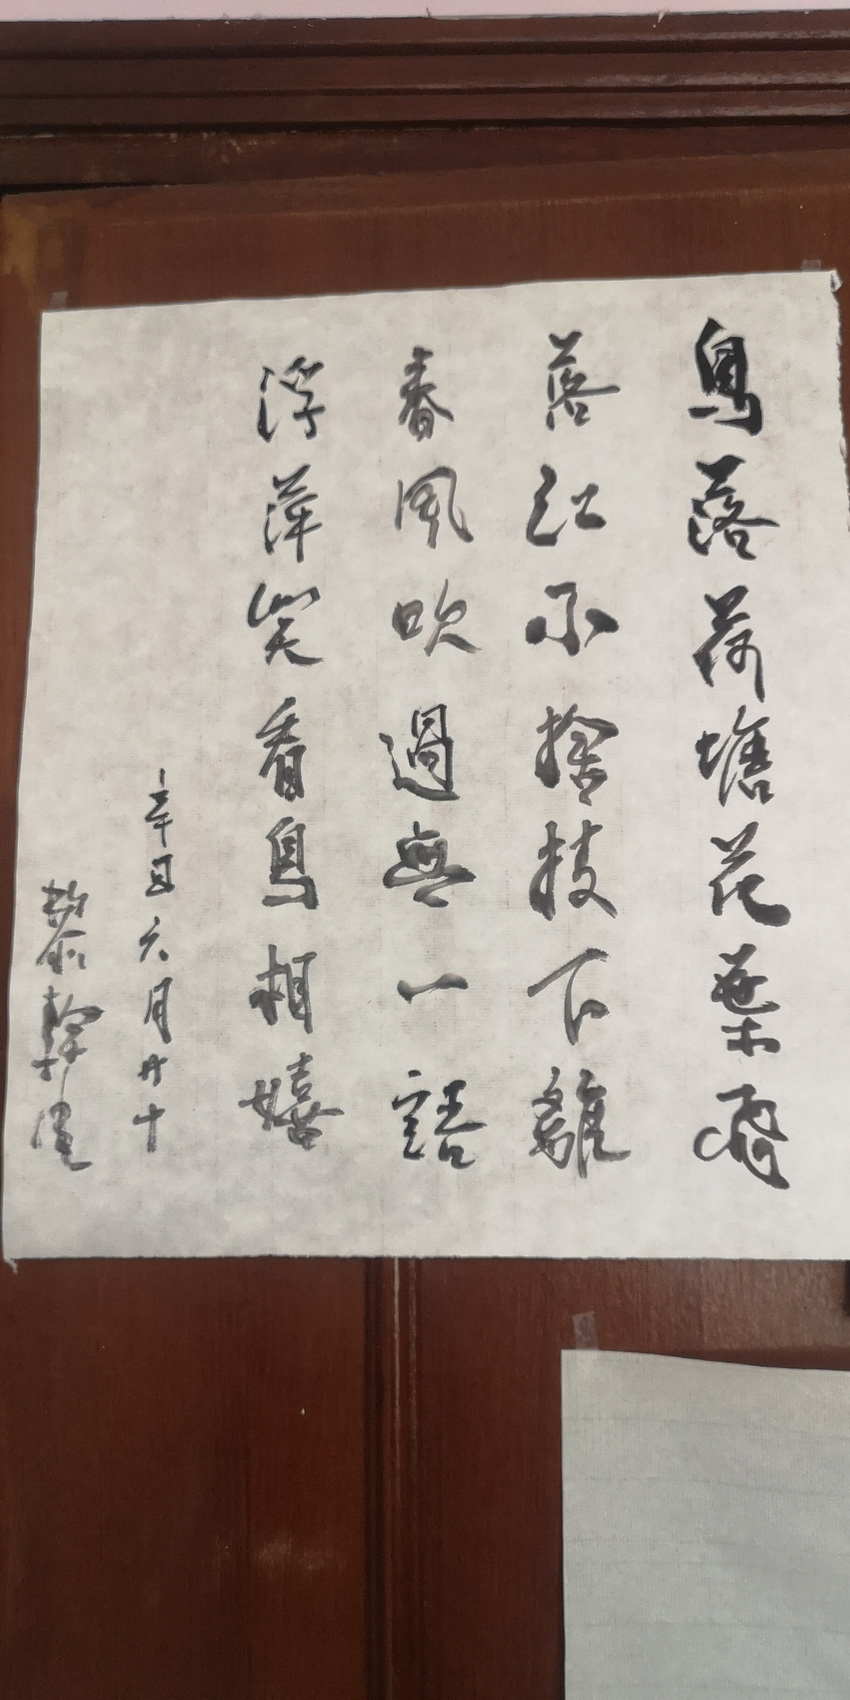 鳥落荷塘花葉飛
落紅不捨枝下離
春風吹過無一語
浮萍笑看鳥相嬉
辛丑六月廿十
黎